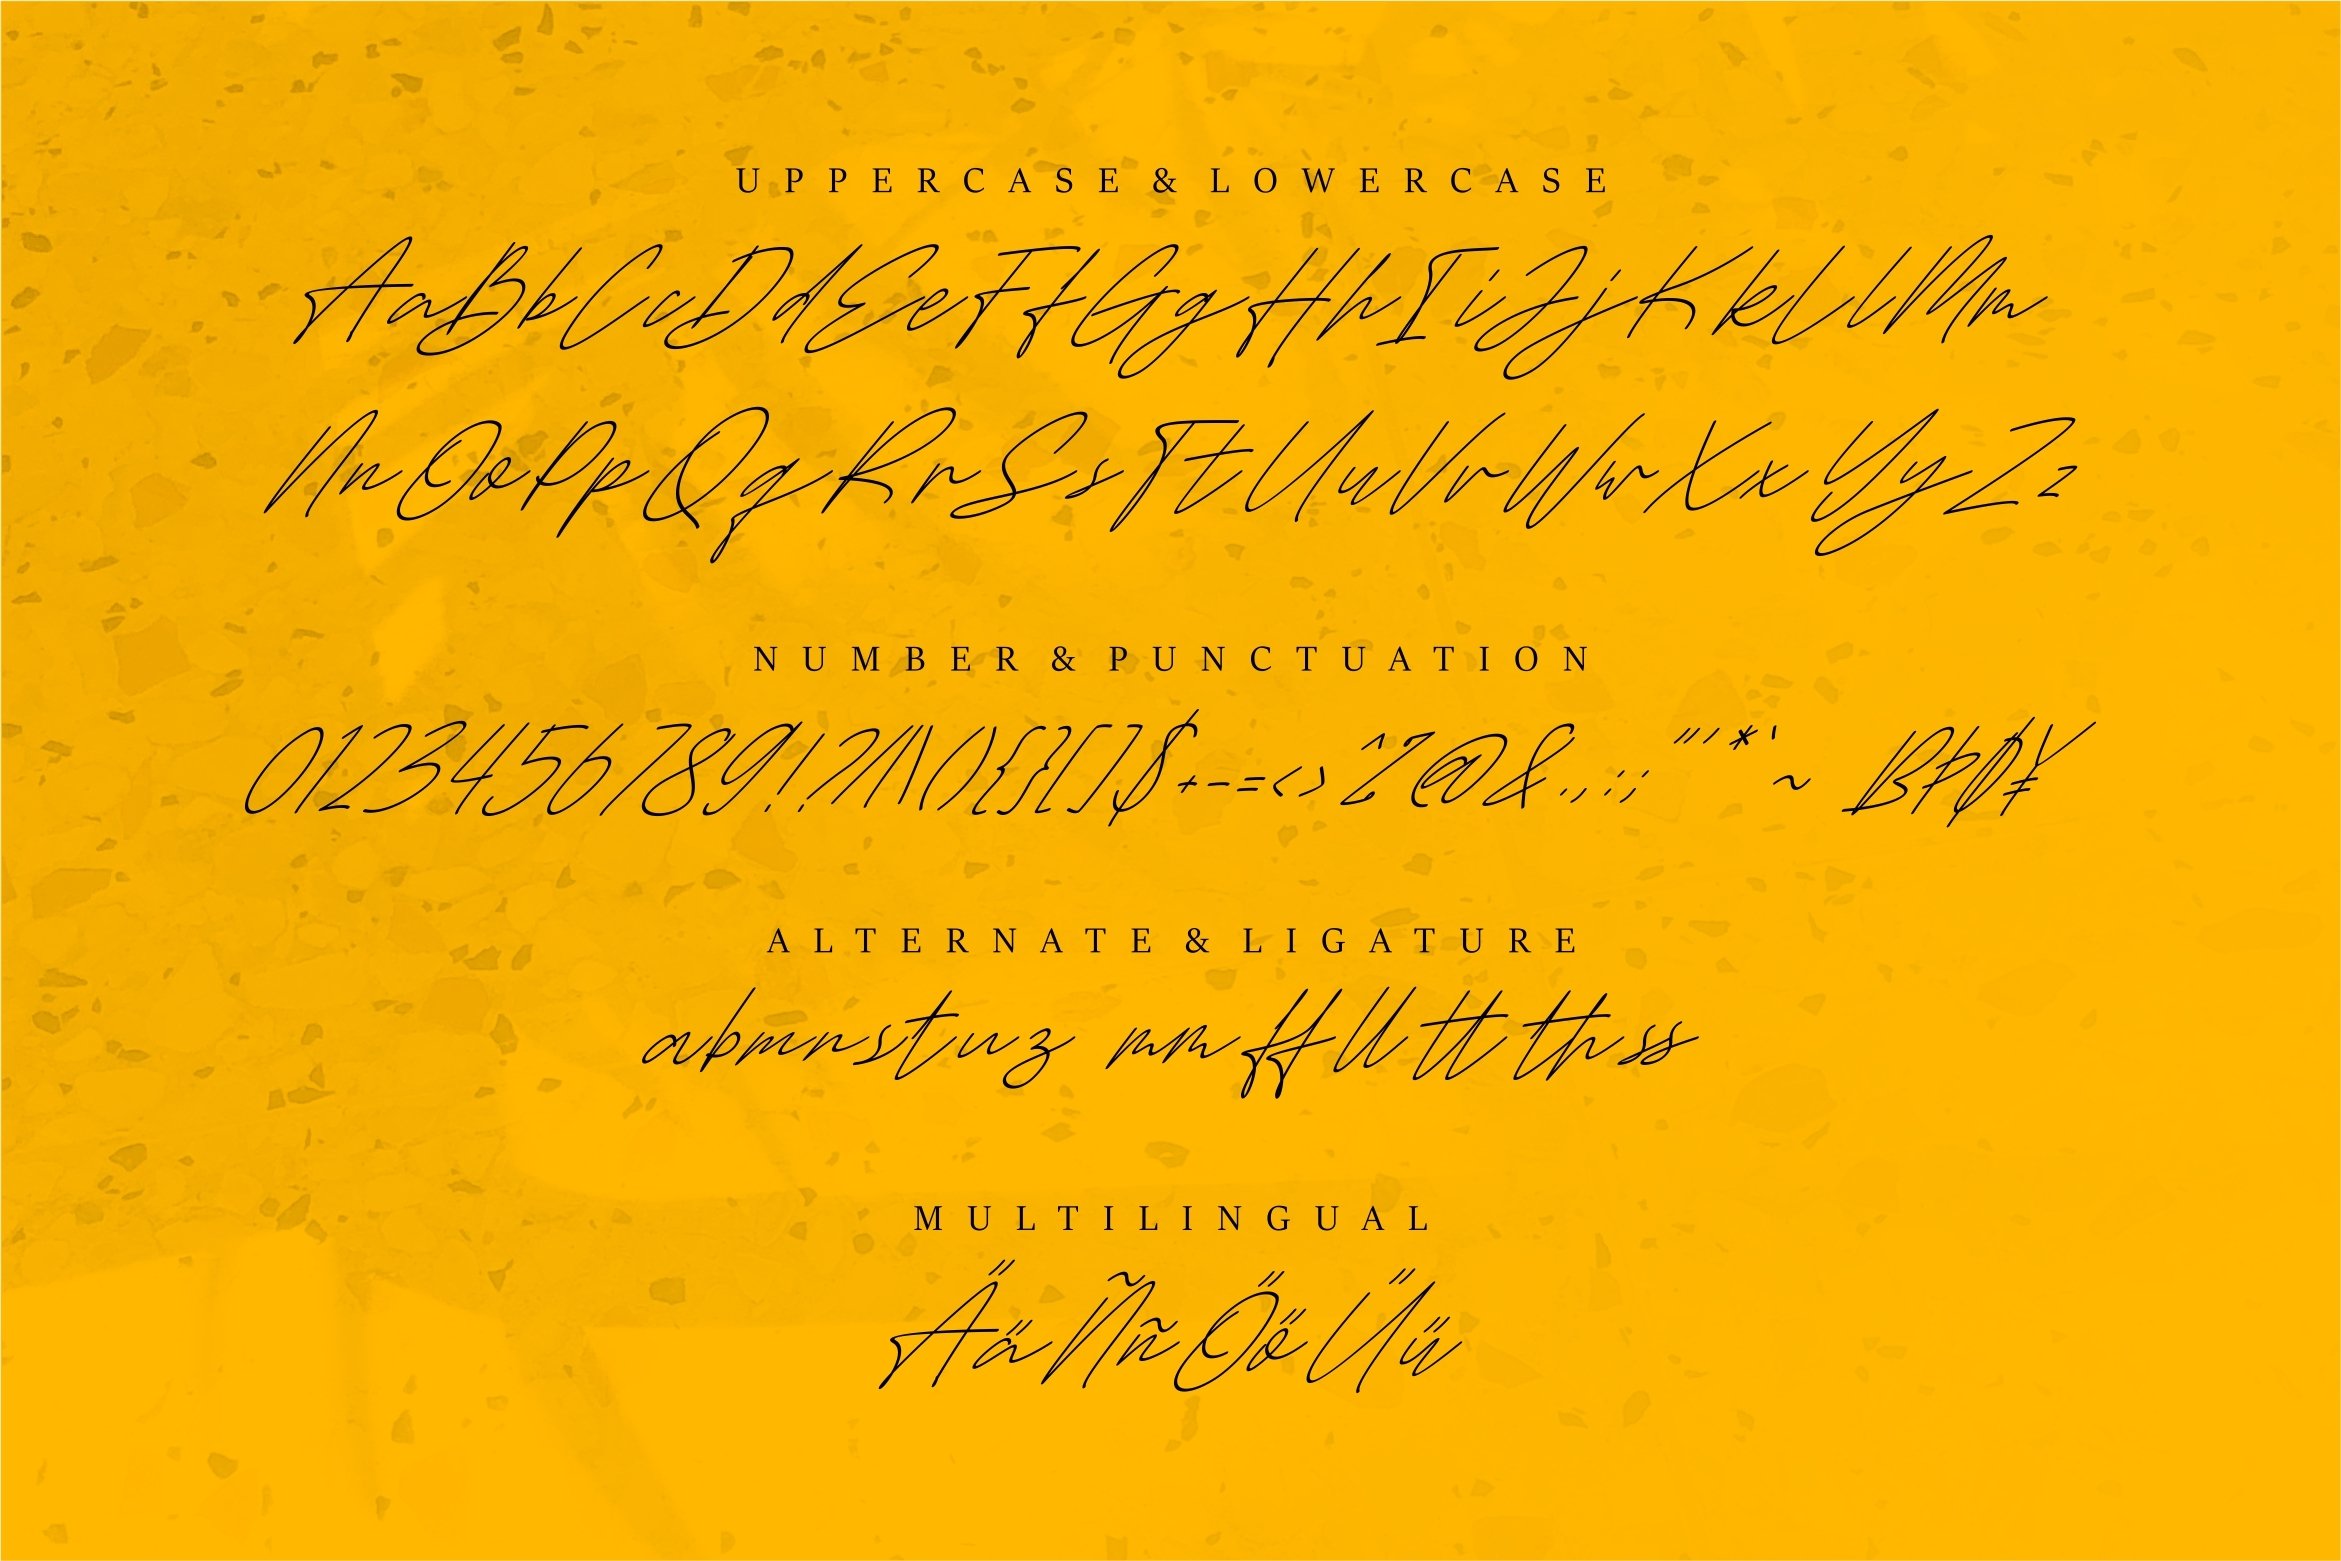 UPPERCASE & LOWERCASE
AaBbCcDdEeFfGgHhIiJjKkLlMm
NnOoPpQqRrSsTtUuVvWwXxYyZz
NUMBER & PUNCTUATION
0123456789!?/|\(){}[]$+-=<>^%@&.,:;"'*‘ ~
ALTERNATE & LIGATURE
abmnstuz mm ff ll tt th ss
MULTILINGUAL
ÄäÑñÖöÜü